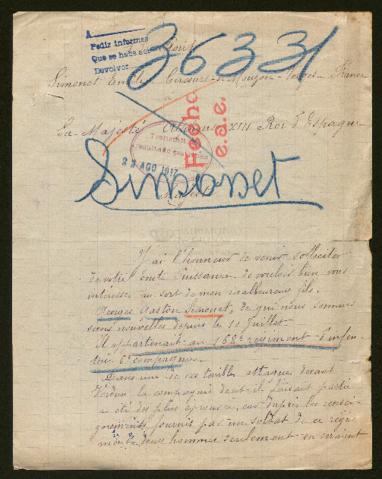 A
Pedir informes
Que se haga así
Devolver
36331
Simonet Emile Circourt s/ Mouzon Vosges France
Sa Majesté Alphonse XIII Roi d'Espagne
Fecho
e.a.e.
23 AGO 1917
Simonet
J'ai l'honneur de venir solliciter
de votre haute Puissance de vouloir bien vous
intéresser au sort de mon malheureux fils
Georges Gaston Simonet, de qui nous sommes
sans nouvelles depuis le 10 Juillet
Il appartenait au 168e régiment d'infan
terie 6e compagnie.
Dans une de ces terribles attaques devant
Verdun la compagnie dont il faisait partie
a été des plus éprouvée, car d'après les rensei
gnements fournis par un soldat de ce régi
ment deux hommes seulement en seraient